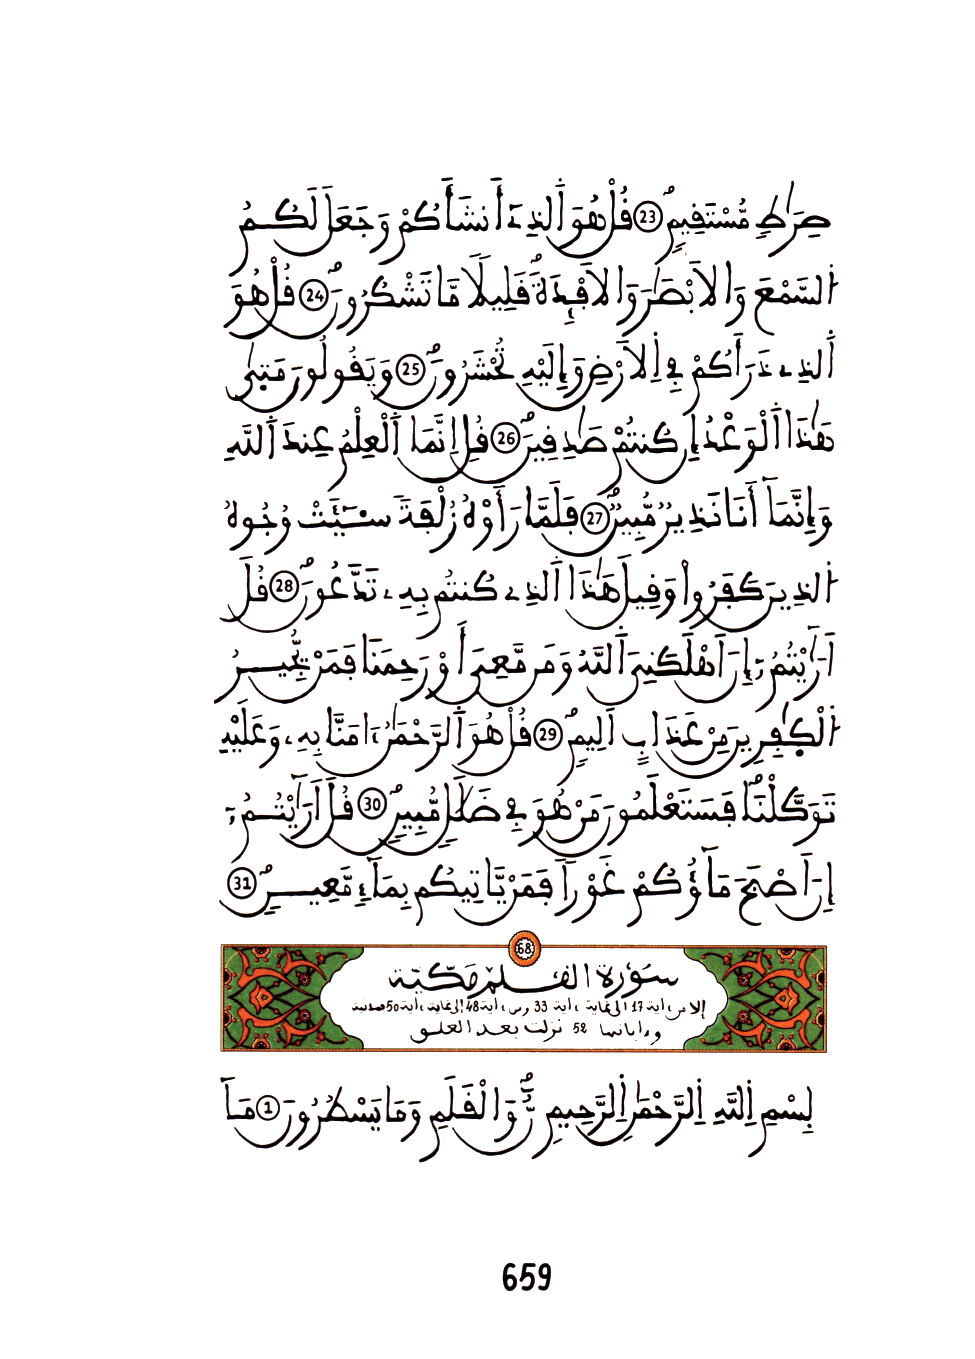 صِرَٰطٖ مُّسْتَقِيمٖ 23 قُلْ هُوَ اَ۬لذِےٓ أَنشَأَكُمْ وَجَعَلَ لَكُمُ
اُ۬لسَّمْعَ وَالَابْصَٰرَ وَالَافْـِٕدَةَۖ قَلِيلاٗ مَّا تَشْكُرُونَۖ 24 قُلْ هُوَ
اَ۬لذِے ذَرَأَكُمْ فِے اِ۬لَارْضِ وَإِلَيْهِ تُحْشَرُونَۖ 25 وَيَقُولُونَ مَتَىٰ
هَٰذَا اَ۬لْوَعْدُ إِن كُنتُمْ صَٰدِقِينَۖ 26 قُلِ اِنَّمَا اَ۬لْعِلْمُ عِندَ اَ۬للَّهِ
وَإِنَّمَآ أَنَا نَذِيرٞ مُّبِينٞۖ 27 فَلَمَّا رَأَوْهُ زُلْفَةٗ سِيٓـَٔتْ وُجُوهُ
اُ۬لذِينَ كَفَرُواْ وَقِيلَ هَٰذَا اَ۬لذِے كُنتُم بِهِۦ تَدَّعُونَۖ 28 قُلَ
اَرَٰٓيْتُمُۥٓ إِنَ اَهْلَكَنِيَ اَ۬للَّهُ وَمَن مَّعِيَ أَوْ رَحِمَنَا فَمَنْ يُّجِيرُ
اُ۬لْكَٰفِرِينَ مِنْ عَذَابٍ اَلِيمٖۖ 29 قُلْ هُوَ اَ۬لرَّحْمَٰنُ ءَامَنَّا بِهِۦ وَعَلَيْهِ
تَوَكَّلْنَاۖ فَسَتَعْلَمُونَ مَنْ هُوَ فِے ضَلَٰلٖ مُّبِينٖۖ 30 قُلَ اَرَٰٓيْتُمُۥٓ
إِنَ اَصْبَحَ مَآؤُكُمْ غَوْراٗ فَمَنْ يَّاتِيكُم بِمَآءٖ مَّعِينٖۖ 31
68
سُورَةُ الْقَلَمِ مَكِّيَّة
إلا من آية 17 إلى غاية آية 33 ومن آية 48 إلى غاية آية 50 فمدنية
وءاياتها 52 نزلت بعد العلق
بِسْمِ اِ۬للَّهِ اِ۬لرَّحْمَٰنِ اِ۬لرَّحِيمِ نَٓۖ وَالْقَلَمِ وَمَا يَسْطُرُونَ 1 مَآ
659